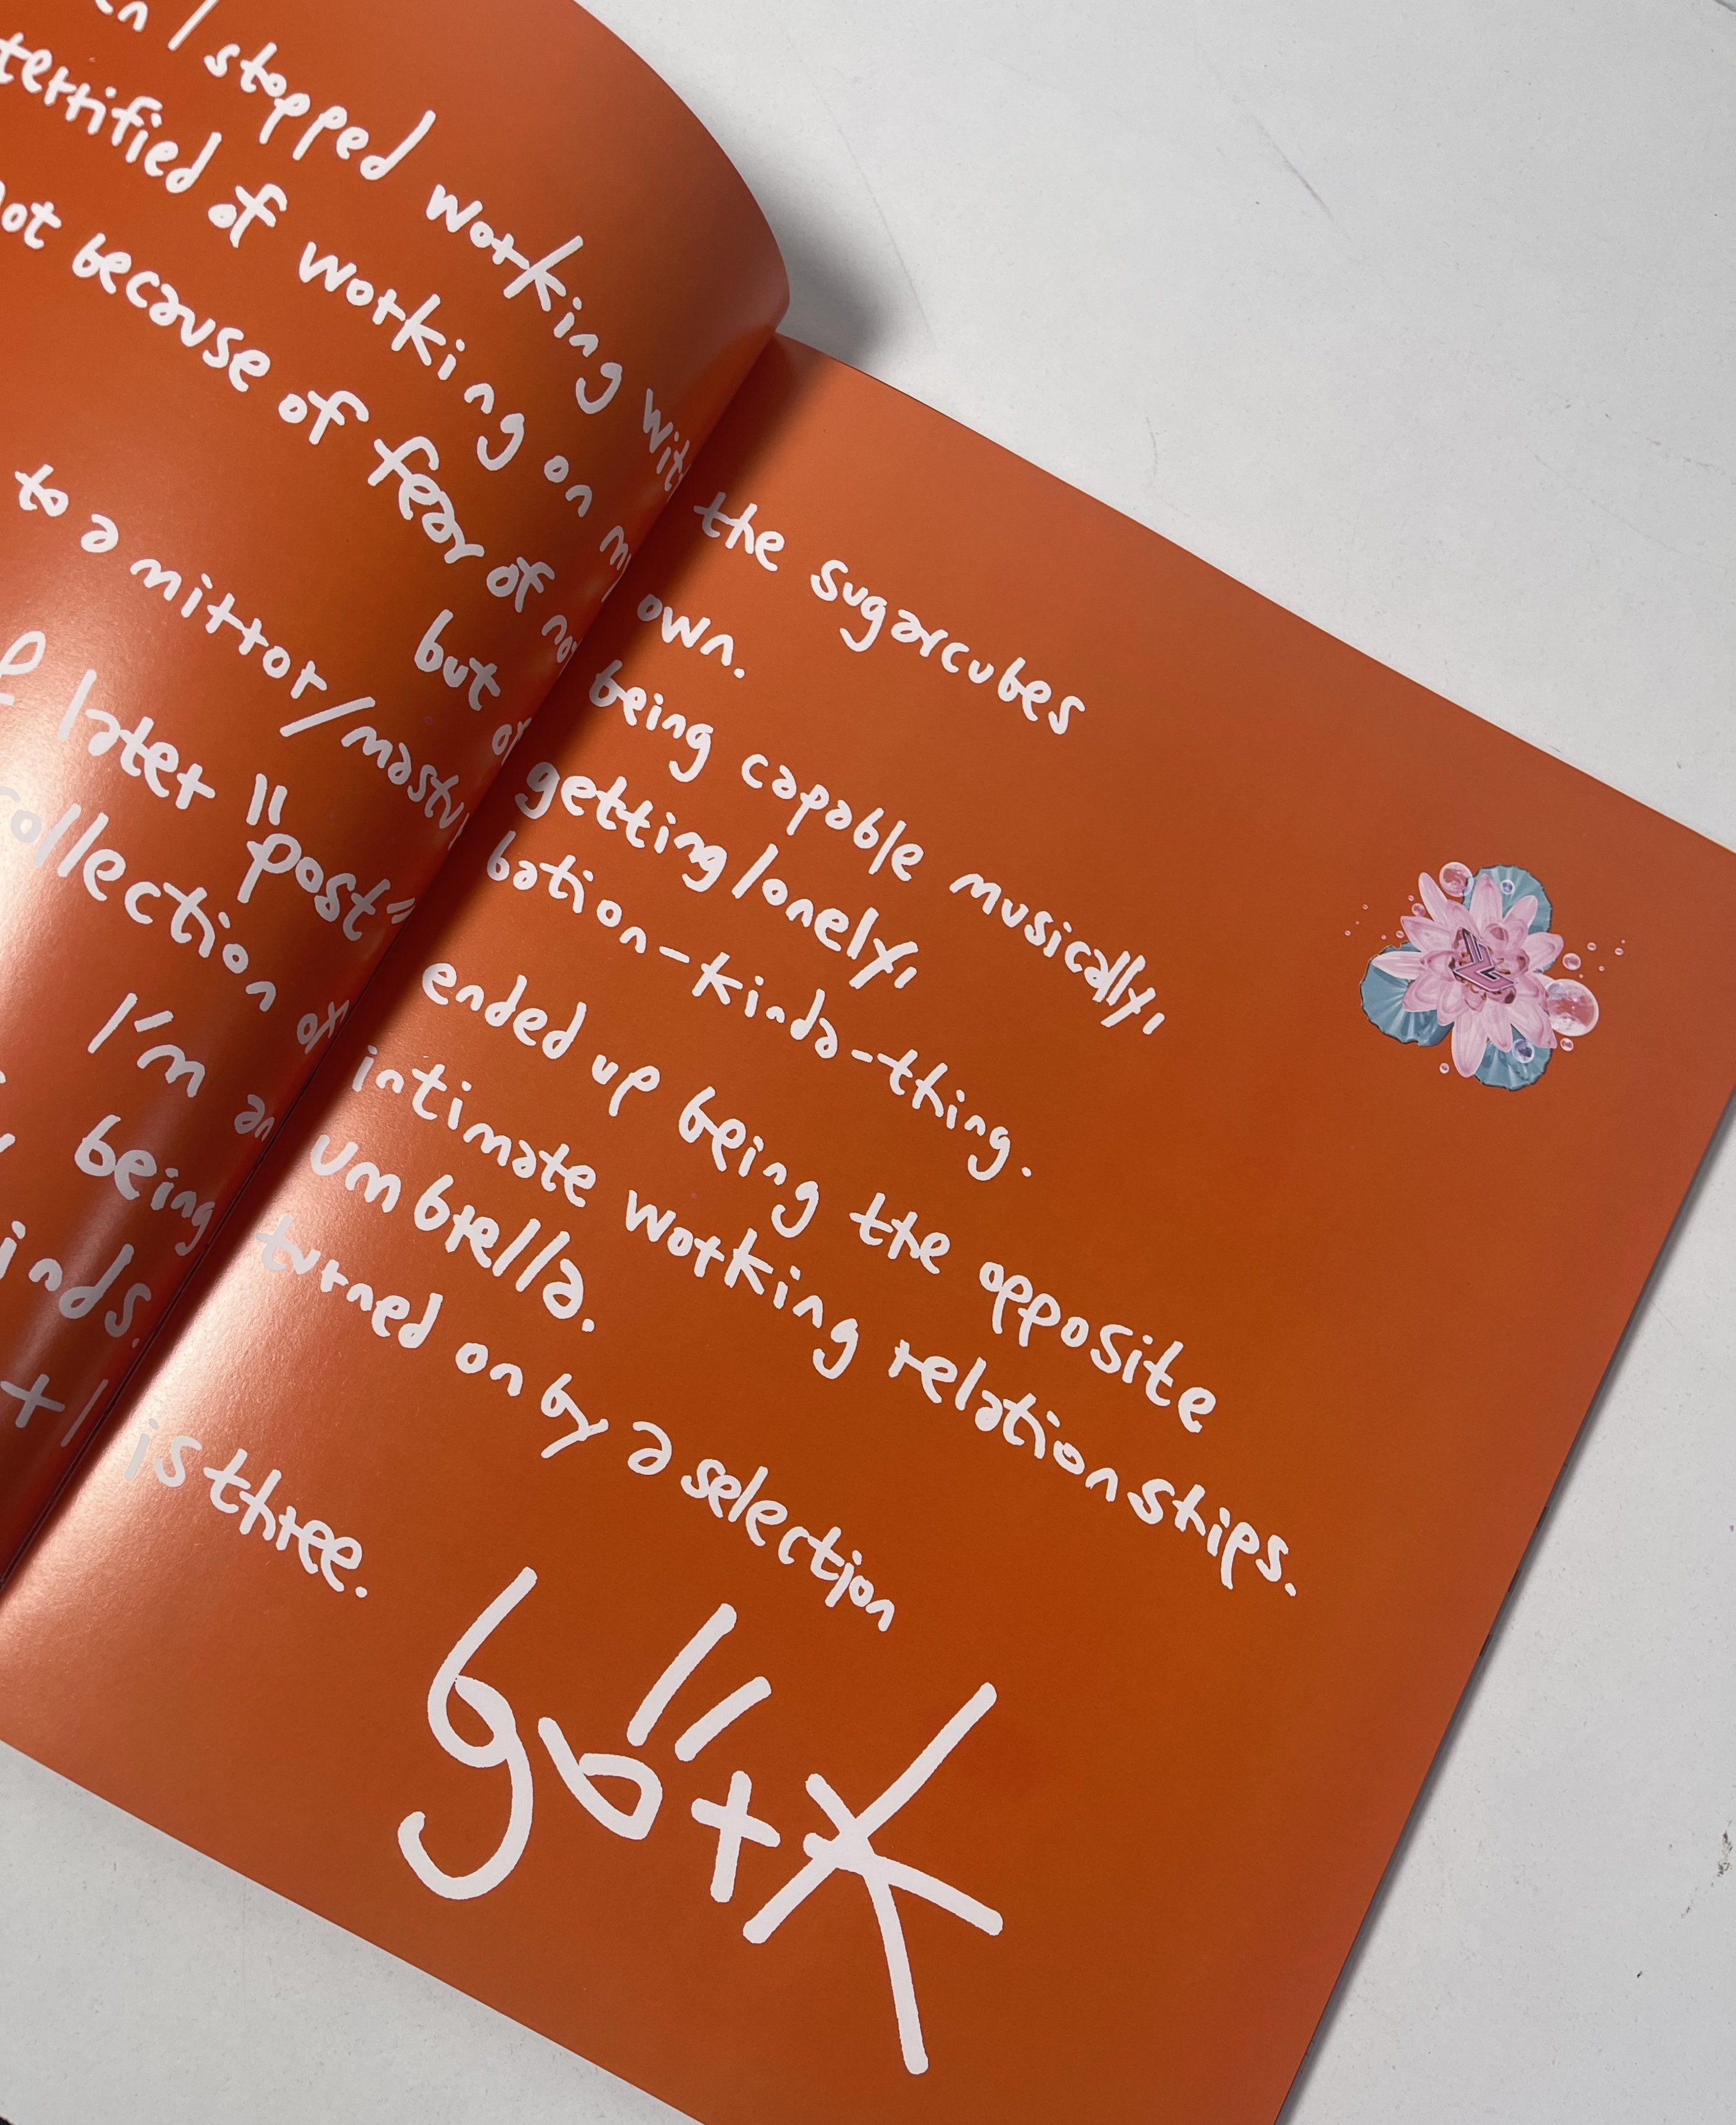 I stopped working with the sugarcubes
terrified of working on my own.
not because of fear of not being capable musically,
but of getting lonely,
to a mirror/mastur bation-kinda-thing.
later "post" ended up being the opposite
collection of intimate working relationships.
I'm an umbrella.
being turned on by a selection
+1 is three.
björk